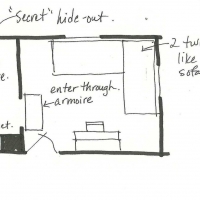 "secret" hide-out.
2 tw
like
sofa
enter through
armoire
e.
et.